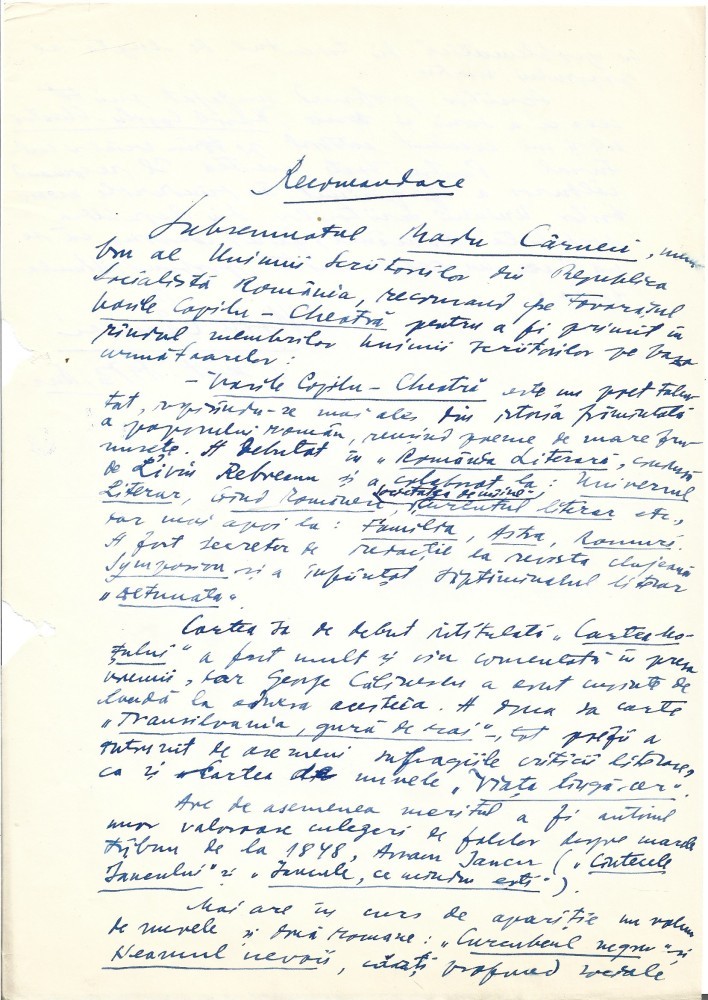 Recomandare
Subsemnatul Radu Cârneci, mem-
bru al Uniunii Scriitorilor din Republica
Socialistă România, recomand pe tovarășul
Vasile Copilu-Cheatră pentru a fi primit în
rîndul membrilor Uniunii Scriitorilor pe baza
următoarelor:
- Vasile Copilu-Cheatră este un poet talen-
tat, inspirîndu-se mai ales din istoria frămîntată
a poporului român, scriind poeme de mare fru-
musețe. A debutat în "România Literară", condusă
de Liviu Rebreanu și a colaborat la: Universul
Literar, Societatea de mîine,
Gînd Românesc, Curentul literar etc.,
iar mai apoi la: Familia, Astra, Ramuri.
A fost secretar de redacție la revista clujeană
Symposion și a înființat săptămînalul literar
"Detunata".
Cartea sa de debut intitulată "Cartea Mo-
țului" a fost mult și viu comentată în presa
vremii, iar George Călinescu a avut cuvinte de
laudă la adresa acesteia. A doua sa carte
"Transilvania, gură de rai", tot poezii a
întrunit de asemeni sufragiile criticii literare,
ca și cartea de nuvele "Viața lîngă cer".
Are de asemenea meritul a fi autorul
unor valoroase culegeri de folclor despre marele
tribun de la 1848, Avram Iancu ("Cîntecele
Iancului" și "Iancule, ce mîndru ești").
Mai are în curs de apariție un volum
de nuvele și două romane: "Curcubeul negru" și
Neamul nevoii, cărți profund sociale